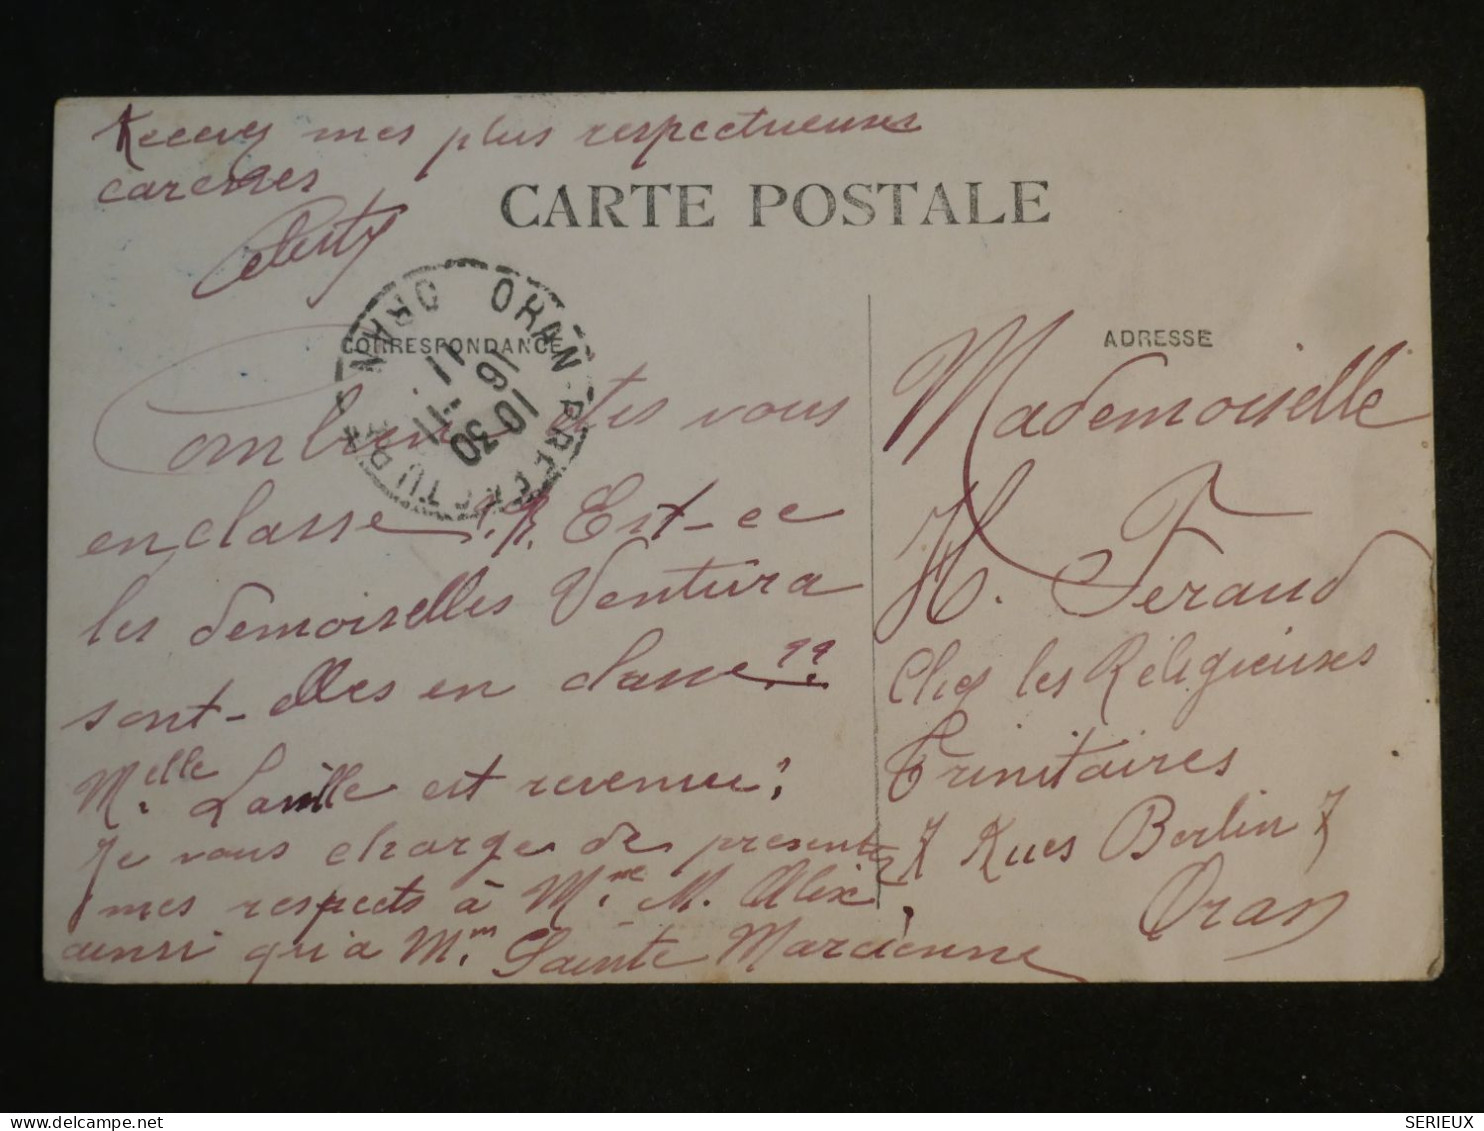 Recevez mes plus respectueuses
caresses
Celesty
CARTE POSTALE
CORRESPONDANCE
ORAN-PRÉFECTURE
ORAN
10 30
Combien êtes vous
en classe Est-ce
les demoiselles Ventura
sont-elles en classe ??
Melle Laville est revenue?
Je vous charge de présenter
mes respects à Mme M. Alix,
ainsi qu'à Mm Sainte Marcienne
ADRESSE
Mademoiselle
H. Feraud
Chez les Réligieuses
Trinitaires
7 Rues Berlin 7
Oran
SERIEUX